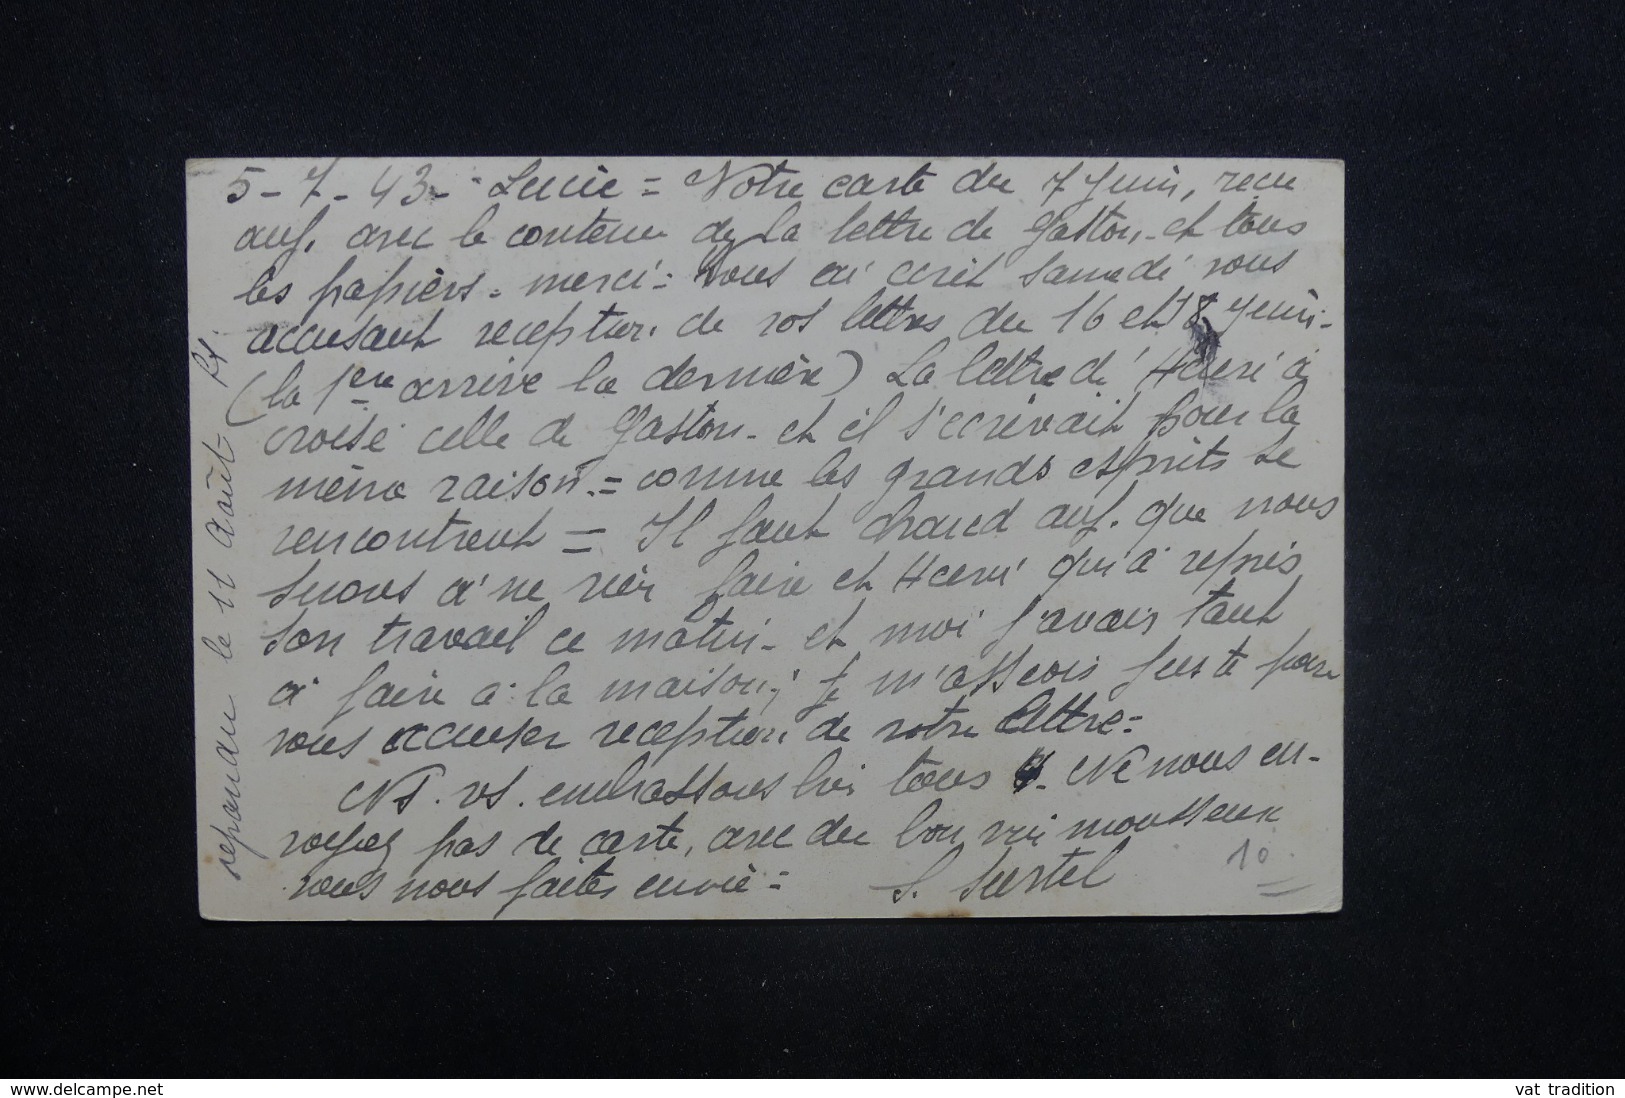 5-7-43- Lucie = Votre carte du 7 Juin, reçu
auj. avec le contenu de la lettre de Gaston - et tous
les papiers - merci = vous ai écrit Samedi vous
accusant reception de vos lettres du 16 et 18 Juin -
(la 1ère arrivé la dernière) La lettre d'Henri à
croisé celle de Gaston - et il s'écrivait pour la
même raison. = comme les grands esprits se
rencontrent = Il faut chaud auj. que nous
suons à ne rien faire et Henri qui à repris
son travail ce matin - et moi j'avais tant
à faire à la maison; je m'asseois juste pour
vous accuser reception de votre lettre =
Ns. vs. embrassons bien tous - Ne nous en-
voyez pas de carte, avec du bon vin mousseux
vous nous faites envie = S. Sustel
10
repondu le 11 Août Rf.
www.delcampe.net
vat_tradition